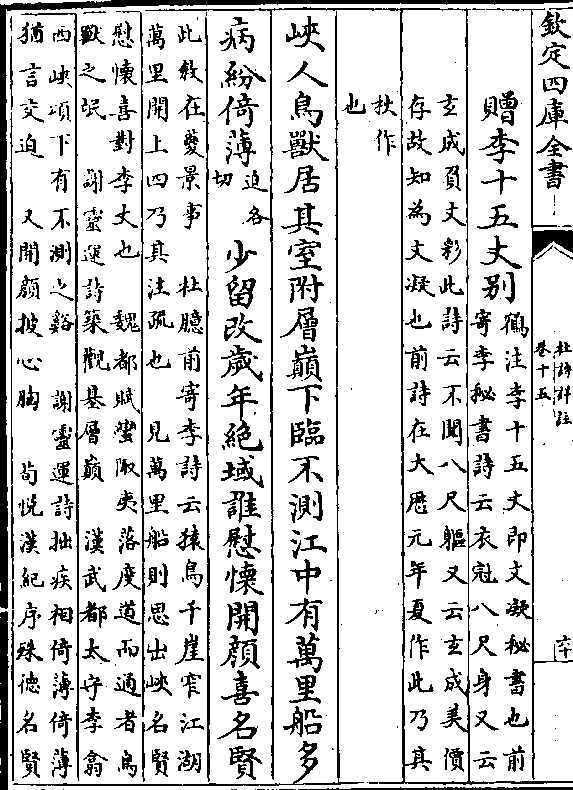 欽定四庫全書
杜詩詳註
卷十五
六十
贈李十五丈别
鶴注李十五丈即文凝秘書也前
寄李秘書詩云衣冠八尺身又云
玄成負文彩此詩云不聞八尺軀又云玄成美價
存故知為文凝也前詩在大厯元年夏作此乃其
秋作
也
峽人鳥獸居其室附層巔下臨不測江中有萬里船多
病紛倚薄
迫各
切
少留改歲年絶域誰慰懷開顔喜名賢
此叙在夔景事 杜臆前寄李詩云猿鳥千崖窄江湖
萬里開上四乃其注疏也 見萬里船則思出峽名賢
慰懷喜對李丈也 魏都賦蠻陬夷落度道而通者鳥
獸之氓 謝靈運詩築觀基層巔 漢武都太守李翕
西峽頌下有不測之谿 謝靈運詩拙疾相倚薄倚薄
猶言交迫 又開顔披心胸 荀悦漢紀序殊德名賢